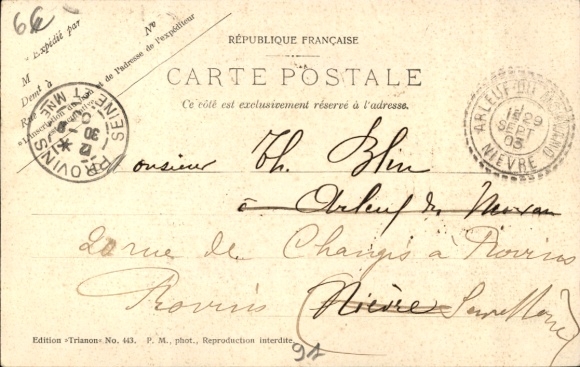 66
« Expédié par
M
Demt à
Rue
Nº
« L'inscription du
et de l'adresse de l'expéditeur
est facultative
RÉPUBLIQUE FRANÇAISE
CARTE POSTALE
Ce côté est exclusivement réservé à l'adresse.
PROVINS
SEINE ET MNE
12
30
ARLEUF-DU
NIÈVRE
29
SEPT
03
Monsieur Th. Blin
à Arleuf du Morvan
20 rue de Changis à Provins
Provins (Nièvre Seine et Marne)
Edition »Trianon« No. 443. P. M., phot., Reproduction interdite.
91